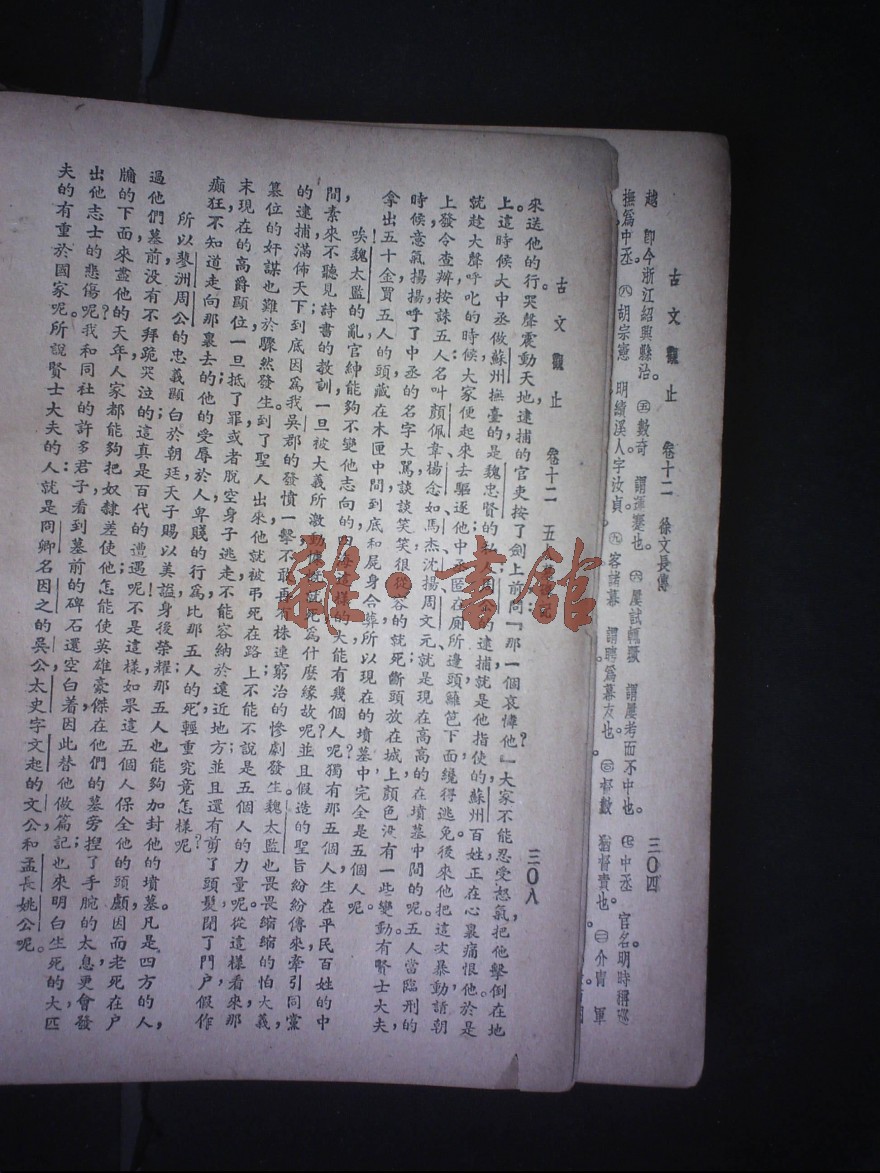 越　卽今浙江紹興縣治。　㊄數奇　謂運蹇也。　㊅屢試輒蹶　謂屢考而不中也。　㊆中丞　官名。明時稱巡
撫爲中丞。　㊇胡宗憲　明績溪人字汝貞。　㊈客諸幕　謂聘爲幕友也。　督數　猶督責也。　介冑　軍
古文觀止　卷十二　徐文長傳　三〇四
古文觀止　卷十二　五　三〇八
來送他的行。哭聲震動天地，逮捕的官吏按了劍上前問『那一個哀憐他』大家不能忍受怒氣，把他擊倒在地
上。這時候大中丞做蘇州撫臺的是魏忠賢的私人，的逮捕，就是他指使的，蘇州百姓正在心裏痛恨他，於是
就趁大聲呼叱的時候，大家便起來去驅逐他，中丞匿在厠所邊頭籬笆下面纔得逃免。後來他把這次暴動請朝
上發令查辦，按誅五人，名叫顏佩韋、楊念如、馬杰、沈揚、周文元，就是現在高高的在墳墓中間的呢。五人當臨刑的
時候，意氣揚揚，呼了中丞的名字大罵，談談笑笑，很從容的就死，斷頭放在城上，顏色沒有一些變動。有賢士大夫
拿出五十金，買五人的頭藏在木匣中間，到底和屍身合葬，所以現在的墳墓中，完全是五個人呢。
唉！魏太監的亂，官紳能夠不變他志向的，四海這樣的大，能有幾個人呢？獨有那五個人，生在平民百姓的中
間，素來不聽見詩書的教訓，一旦被大義所激動，慷慨就死，爲什麼緣故呢？並且假造的聖旨，紛紛傳來，牽引同黨
的逮捕，滿佈天下，到底因爲我吳郡的發憤一擊，不敢再有株連窮治的慘劇發生。魏太監也畏畏縮縮的怕大義，
篡位的奸謀也難於驟然發生，到了聖人出來，他就被弔死在路上，不能不說是五個人的力量呢。從這樣看來，那
末現在的高爵顯位，一旦抵了罪，或者脫空身子逃走，不能容納於遠近地方；並且還有剪了頭髮，閉了門戶，假作
癲狂，不知道走向那裏去的；他的受辱於人，卑賤的行爲，比那五人的死，輕重究竟怎樣呢？
所以蓼洲周公的忠義，顯白於朝廷，天子賜以美謚，身後榮耀；那五人也能夠加封他的墳墓。凡是四方的人，
過他們墓前，沒有不拜跪哭泣的，這真是百代的遭遇呢！不是這樣，如果這五個人保全他的頭顱，因而老死在戶
牖的下面，來盡他的天年，人家都能夠把奴隸差使他，怎能使英雄豪傑，在他們的墓旁，捏了手腕的太息，更會發
出他志士的悲傷呢？我和同社的許多君子，看到墓前的碑石，還空白着，因此替他做篇記；也來明白生死的大，匹
夫的有重於國家呢。所說賢士大夫的人：就是冏卿名因之的吳公，太史字文起的文公，和孟長姚公呢。
雜·書館